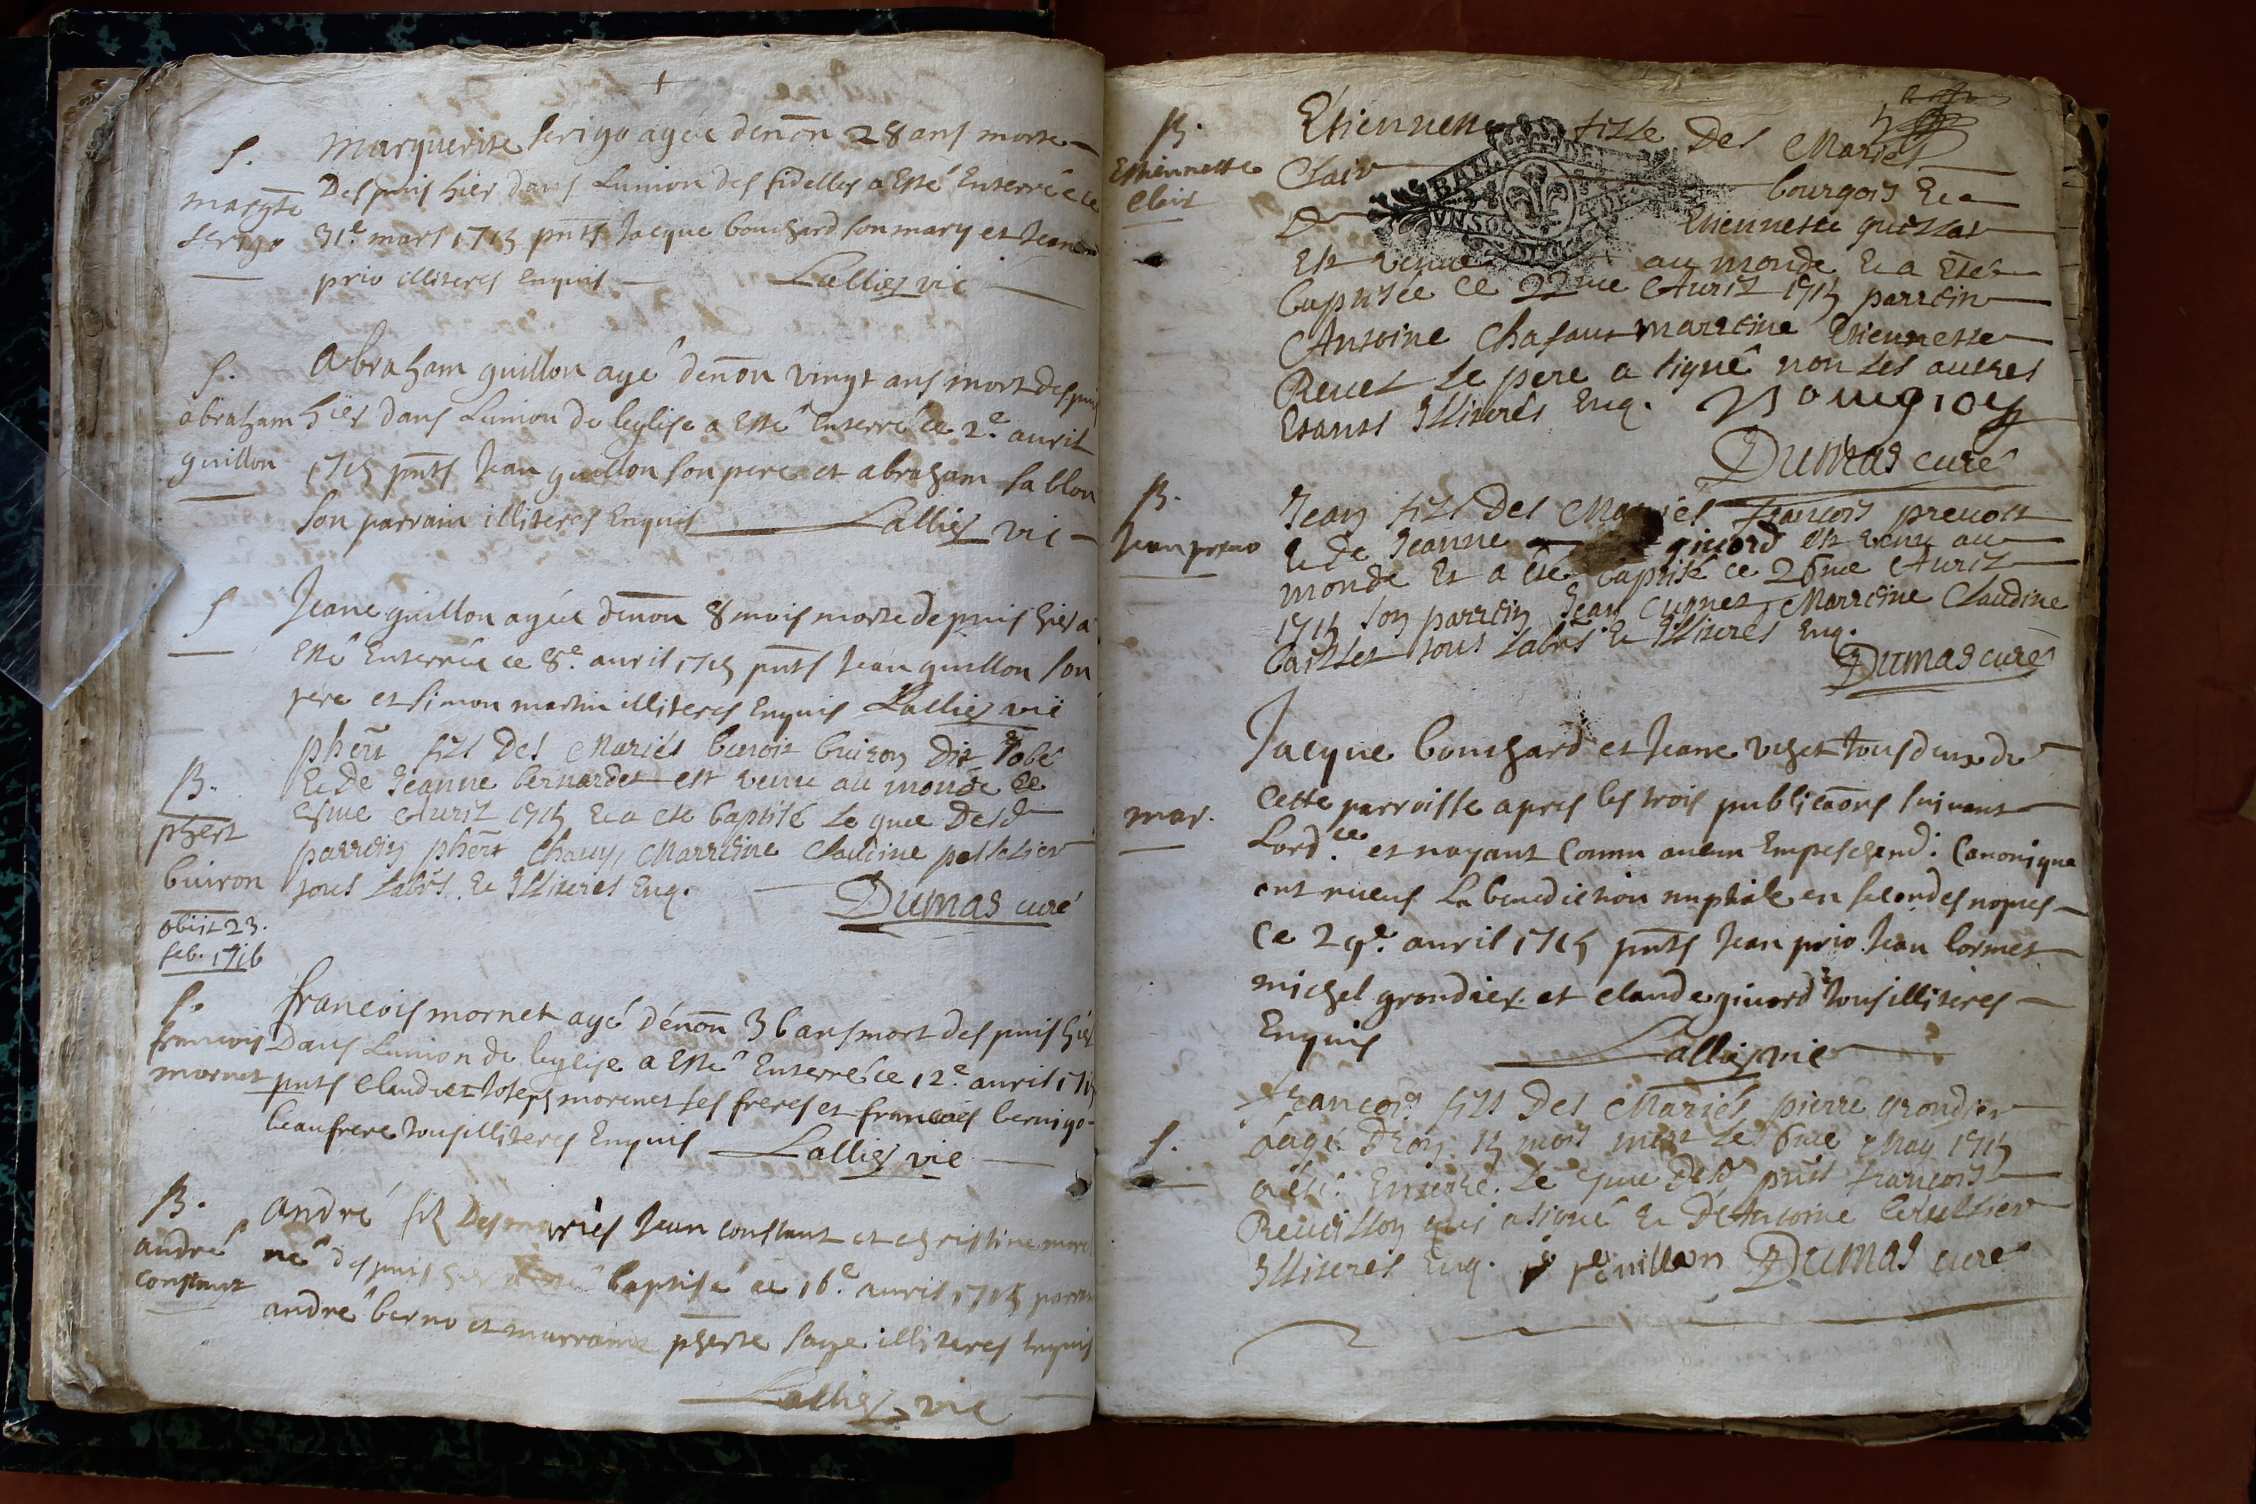 S.
margte
serigo
Marguerite serigo agée denōn 28 ans morte
Despuis hier dans Lunion des fidelles a Esté Enterrée ce
31e mars 1715 pnts Jacque bouchard son mary et Jean
prio illiteres Enquis Lallier vic
S.
abraham
guillon
Abraham guillon agé denōn vingt ans mort despuis
hier dans Lunion de leglise a Esté Enterré ce 2e auril
1715 pnts Jean guillon son pere et abraham sablon
son parrain illiteres Enquis Lallier vic
S
Jeane guillon agée denōn 8 mois morte depuis hier a
Esté Enterrée ce 8e auril 1715 pnts Jean guillon son
pere et simon martin illiteres Enquis Lallier vic
B.
phert
buiron
obiit 23.
feb. 1716
phert fils Des Mariés benoit buiron Dit
Et De Jeanne bernardet est venu au monde le
Auril 1715 Et a eté baptisé Le Desd
parrein phert Chauy, Marreine Claudine pelletier
tous Labrs Et Illiterés Enq.
Dumas curé
S.
francois
mornet
francois mornet agé dénōn 36 ans mort despuis hier
Dans Lunion de leglise a Esté Enterré ce 12e auril 1715
pnts Claude et Joseph mornet ses freres et francois bernigo
beaufrere tous illiteres Enquis Lallier vic
B.
andré
constant
André fils Des mariés Jean constant et christine
né despuis hier a esté baptisé ce 16e auril 1715 parrain
andré berno et marraine pherte saye illiteres Enquis
Lallier vic
B.
Estiennette
Clait
Etiennette fille Des Mariés
Clair bourgois Et
D Etiennette quillat
Est venue au monde Et a Eté
baptisée ce 22me Auril 1715 parrein
Antoine Chafaut marreine Etiennette
Reuet Le pere a signé non Les autres
Etants Illiterés Enq. Bourgiois
Dumas curé
BAIL DE
UN SOL
B.
Jean preuo
Jean fils Des Mariés François preuost
Et De Jeanne giuord est venu au
monde Et a été baptisé ce 26me Auril
1715 son parrein Jean Cugnet, Marreine Claudine
baillet tous Labrs Et Illiterés Enq.
Dumas curé
mar.
Jacque bouchard et Jeane uchet tous deux de
cette parroisse apres les trois publicāons suiuant
Lord.ce et nayant connu aucun Empeschemd. Canonique
ont receus La benediction nuptiale en secondes nopces
Ce 29e auril 1715 pnts Jean prio Jean lormet
michel grondier et claude giuord tous illiteres
Enquis
Lallier vic
S.
François fils Des Mariés pierre grondier
aagé D'ēon 15 mois mort Le 6me May 1715
a été Enterré Le 7me Desd pnts François
Reuillon qui a signé Et D'Antoine
Illiterés Enq. reuillon Dumas curé